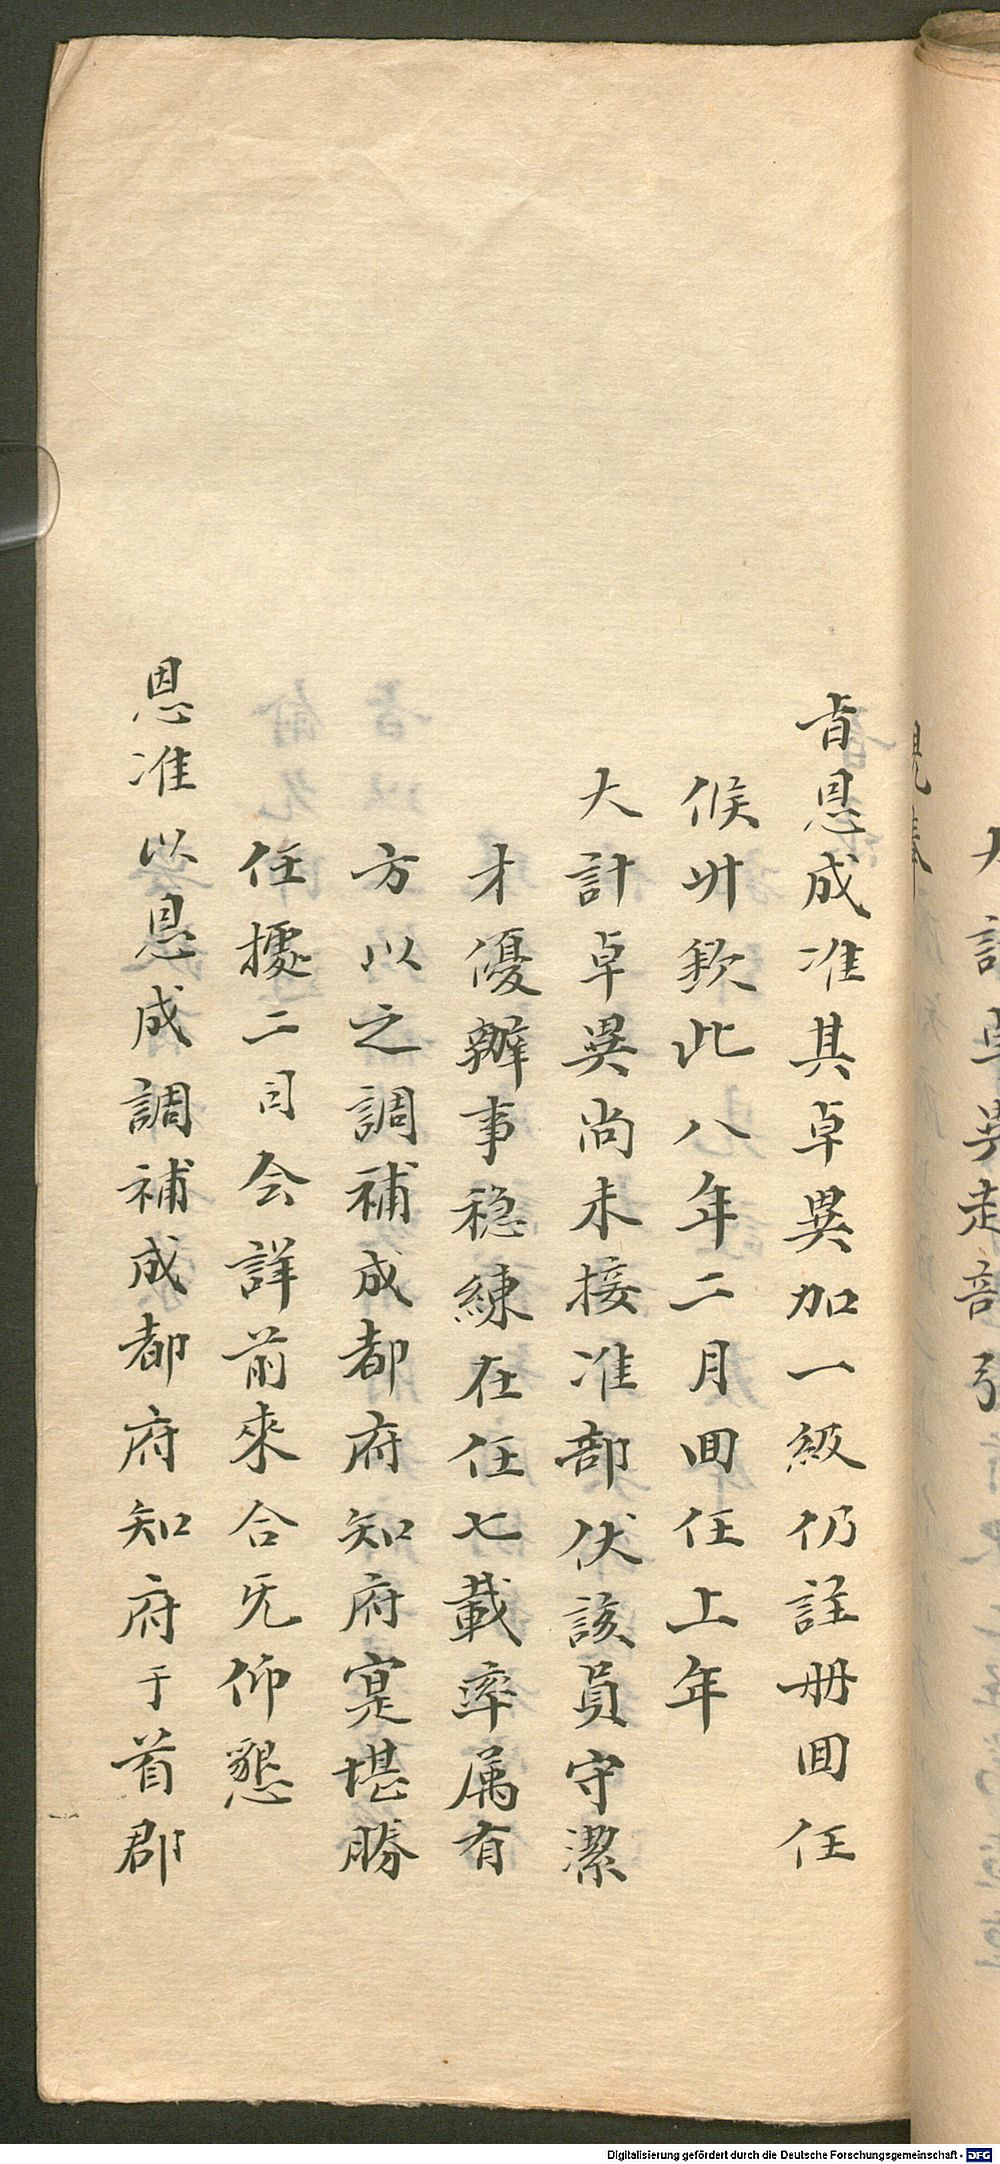 大計卓異赴部引
見奉
旨恩成准其卓異加一級仍註册囬任
候升欽此八年二月囬任上年
大計卓異尚未接准部伏該員守潔
才優辦事穏練在任七載率属有
方以之調補成都府知府寔堪勝
任據二司会詳前來合旡仰懇
恩准以恩成調補成都府知府于首郡
Digitalisierung gefördert durch die Deutsche Forschungsgemeinschaft - DFG